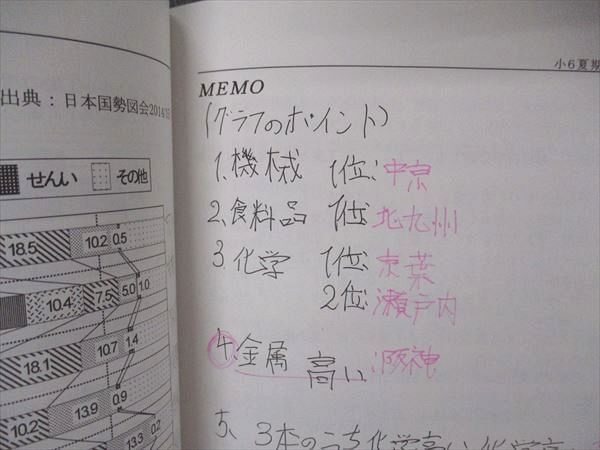 出典：日本国勢図会2014/15
せんい その他
18.5 10.2 0.5
10.4 7.5 5.0 1.0
18.1 10.7 1.4
10.2 13.9 0.9
13.3
小6夏期
MEMO
(グラフのポイント)
1. 機械 1位:中京
2. 食料品 1位:北九州
3. 化学 1位:京葉
2位:瀬戸内
4. 金属 高い:阪神
5、3本のうち化学高い